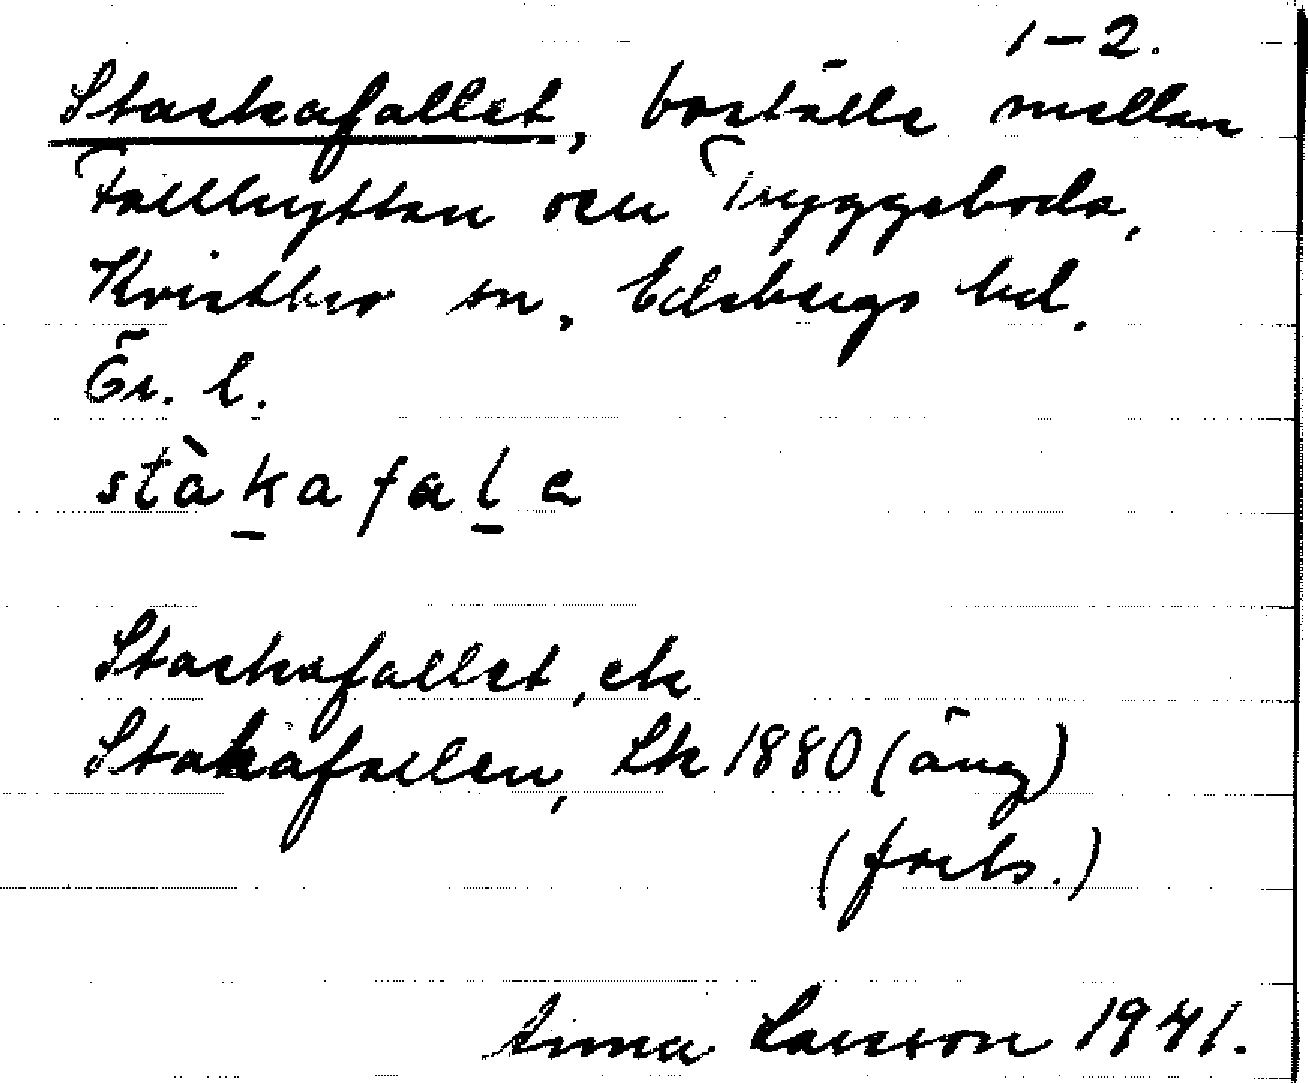 1-2.
Stackafallet, boställe mellan
Fallhyttan och Tryggeboda,
Kvistbro sn, Edsbergs hd.
Ör. l.
stàkafala
Stackafallet, ek
Stakafallen, Lk 1880 (äng)
(forts.)
Anna Larsson 1941.